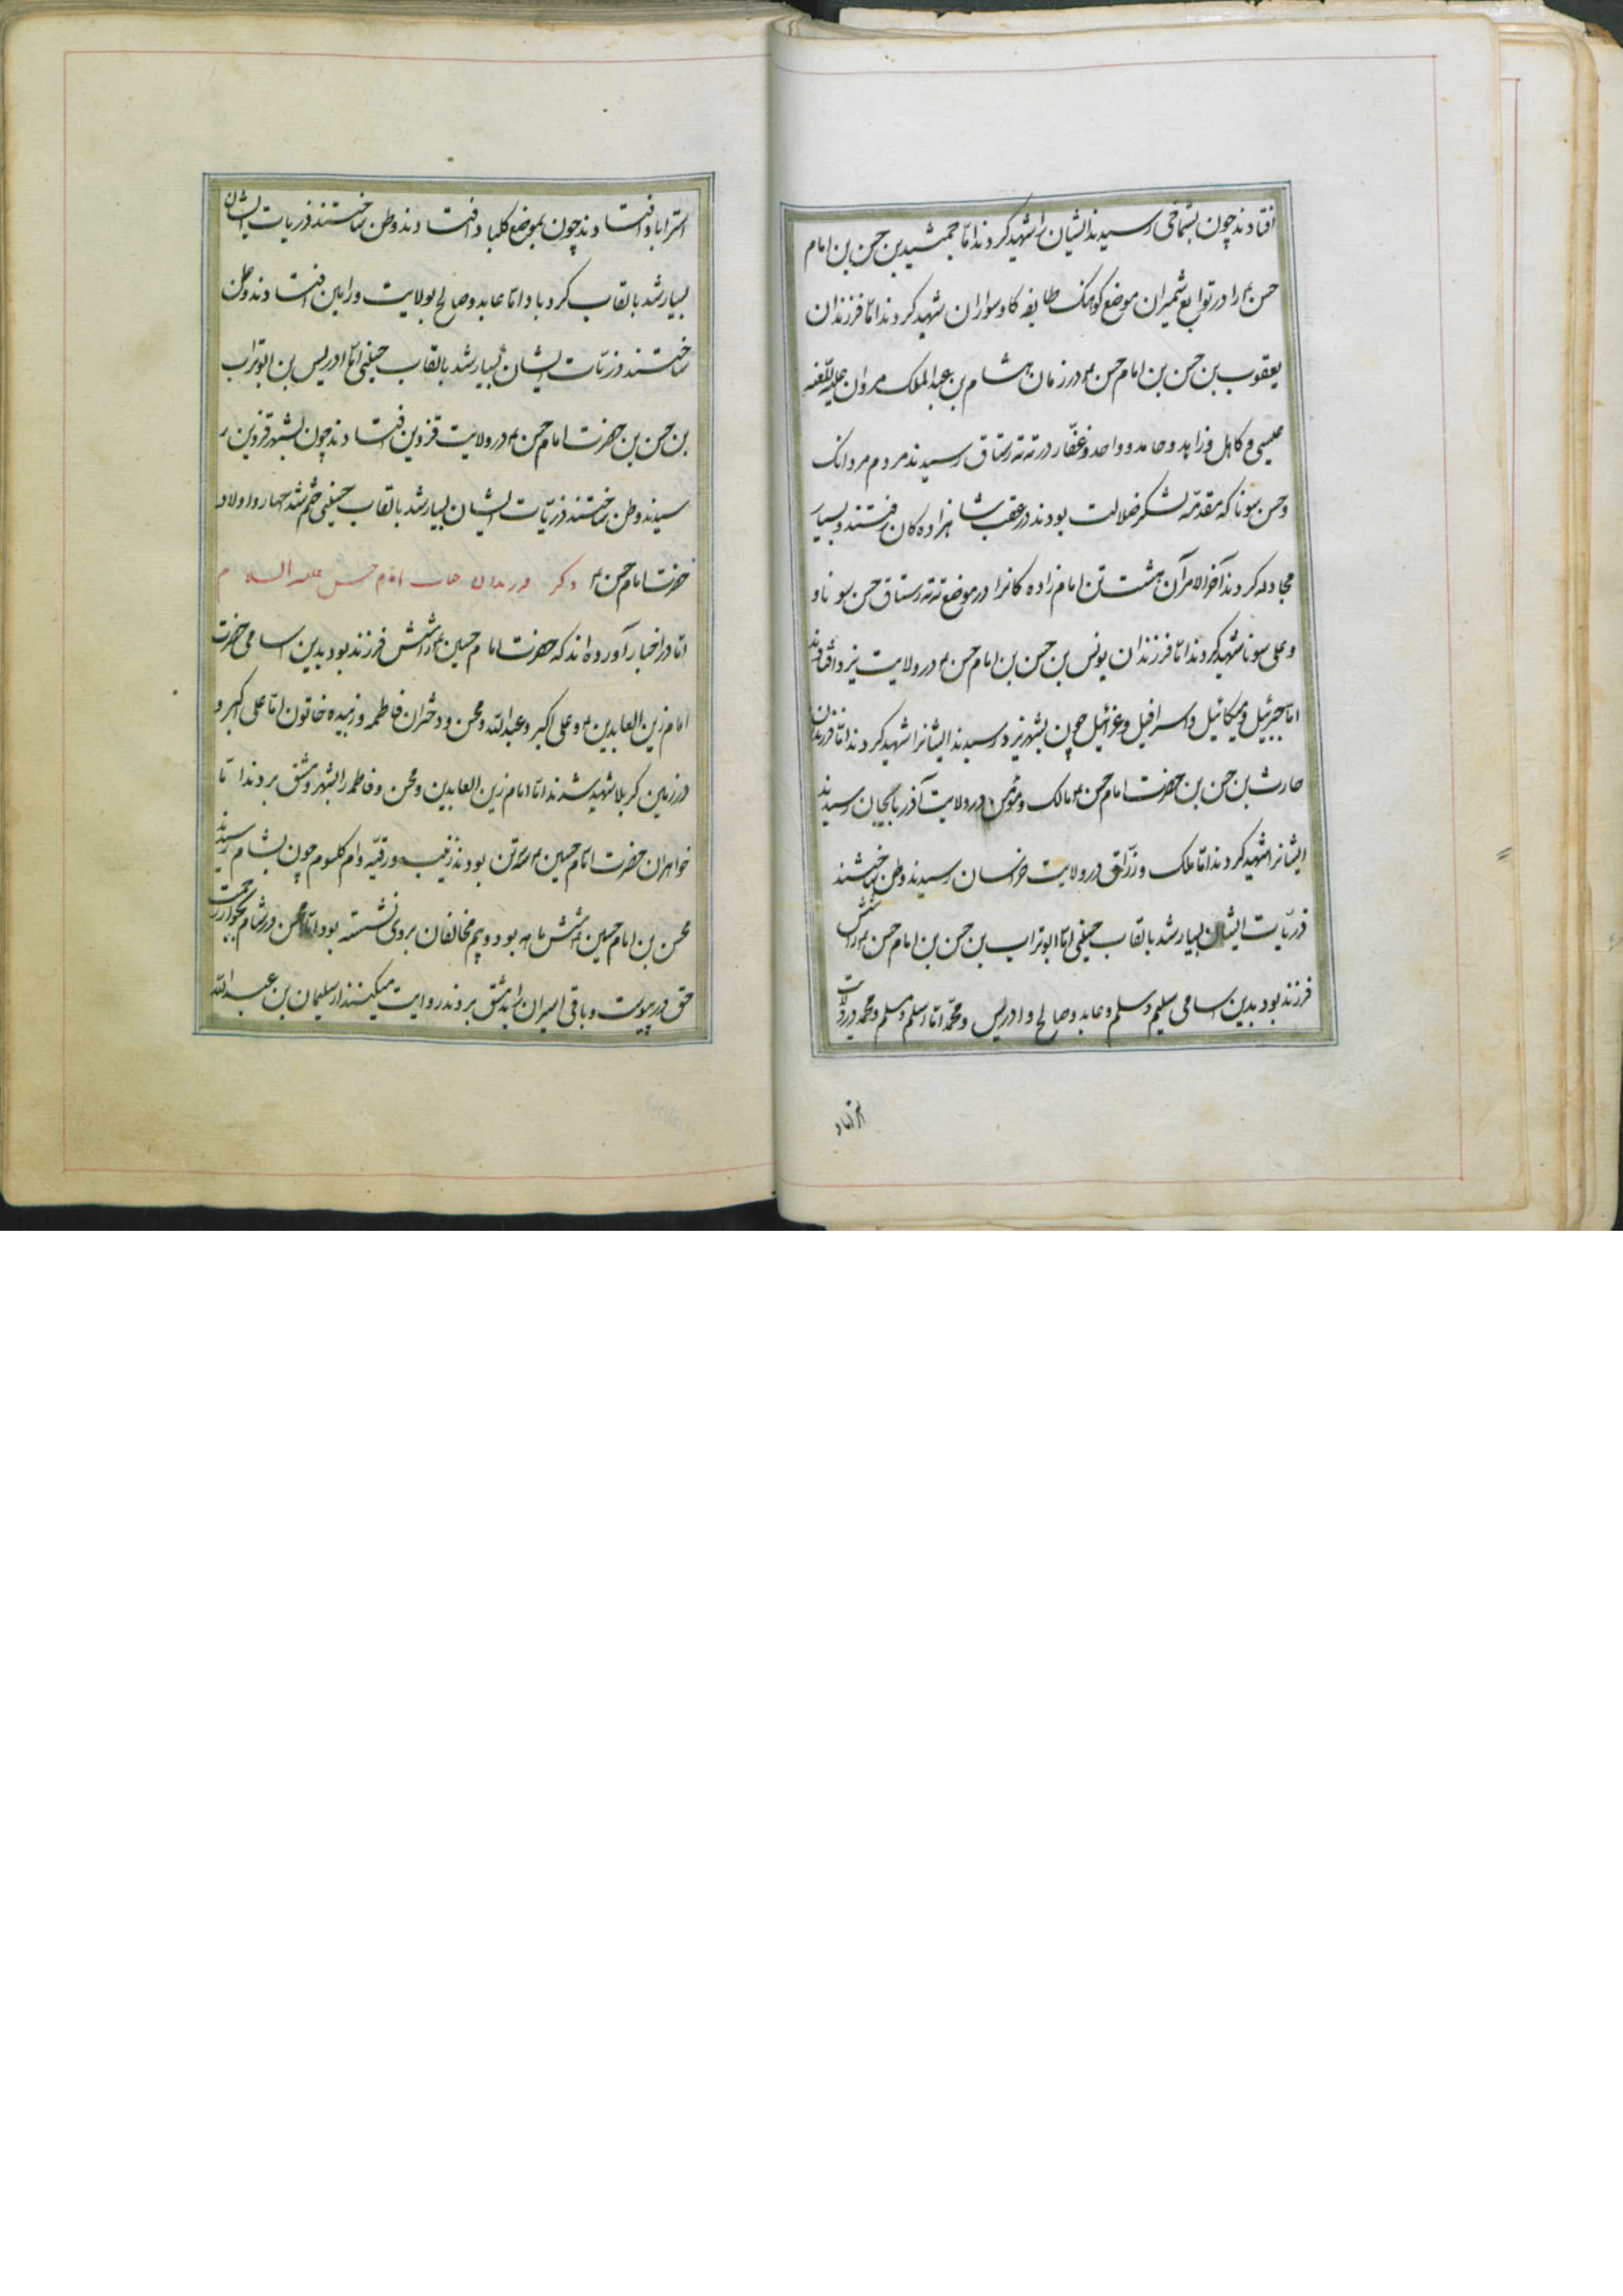 افتادند چون بشماخی رسیدند ایشان را شهید کردند اما جمشید بن حسن بن امام
حسن را در توابع شمیران موضع کوهنک طایفه کاوسواران شهید کردند اما فرزندان
یعقوب بن حسن بن امام حسن در زمان هشام بن عبدالملک مروان علیه اللعنه
عیسی و کامل و زاهد و حامد و واحد و غفار در ته رستاق رسیدند مردم مردانک
و حسن سونا که مقدمه لشکر ضلالت بودند در عقب شاهزاده کان رفتند و بسیار
مجادله کردند آخر الامر آن هشت تن امام زاده کانرا در موضع ته رستاق حسن سونا و
و علی سونا شهید کردند اما فرزندان یونس بن حسن بن امام حسن در ولایت یزد افتادند
اما جبرئیل و میکائیل و اسرافیل و عزرئیل چون بشهر یزد رسیدند ایشانرا شهید کردند اما فرزندان
حارث بن حسن بن حضرت امام حسن مالک و مونس در ولایت آذربایجان رسیدند
ایشانرا شهید کردند اما ملک و رزاق در ولایت خراسان رسیدند و وطن ساختند
ذریات ایشان بسیار شد بالقاب حنیفی اما ابوتراب بن حسن بن امام حسن را شش
فرزند بود بدین سامی سلیم و مسلم و عابد و صالح و ادریس و محمد اما سلم و مسلم و محمد در ولایت
استراباد
استراباد افتادند چون بموضع کلباد افتادند و وطن ساختند ذریات ایشان
بسیار شد بالقاب کردباد اما عابد و صالح بولایت ورامین افتادند و وطن
ساختند و ذریات ایشان بسیار شد بالقاب حنیفی اما ادریس بن ابوتراب
بن حسن بن حضرت امام حسن در ولایت قزوین افتادند چون بشهر قزوین ر
سیدند وطن ساختند ذریات ایشان بسیار شد بالقاب حسینی ختم شد چهار و اولاد
حضرت امام حسن ذکر فرزندان جناب امام حسین علیه السلام
اما در اخبار آورده اند که حضرت امام حسین را شش فرزند بود بدین سامی حضرت
امام زین العابدین و علی اکبر و عبدالله و محسن و دختران فاطمه و زبیده خاتون اما علی اکبر و
در زمین کربلا شهید شدند اما امام زین العابدین و محسن و فاطمه را بشهر دمشق بردند اما
خواهران حضرت امام حسین سه تن بودند زینب و رقیه و ام کلسوم چون بشام رسیدند
محسن بن امام حسین شش ماهه بود و بیم مخالفان بر وی نشسته بود اما محسن در شام بجوار رحمت
حق در پیوست و باقی اسیران را بدمشق بردند روایت میکنند از سلیمان بن عبدالله